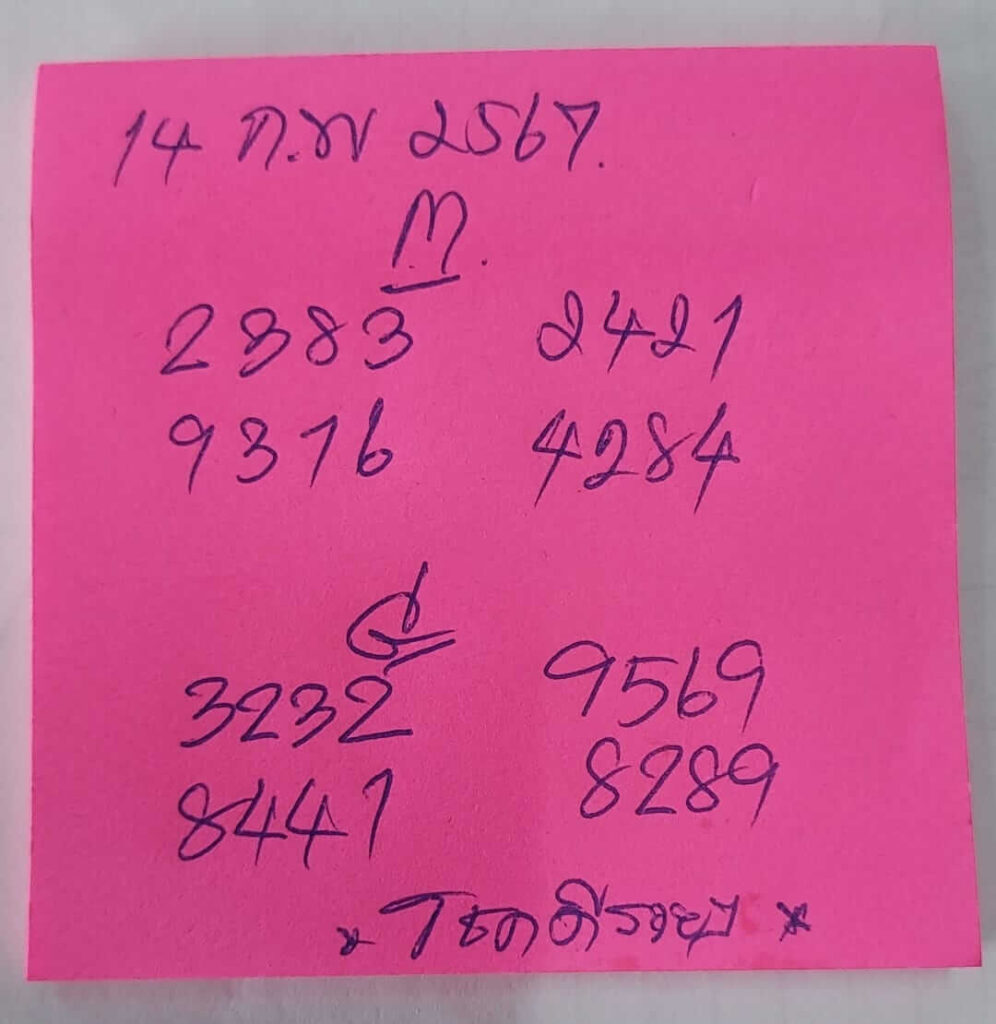 14 ก.พ 2567.
M.
2383 2421
9376 4284
3232 9569
8441 8289
* โชคดีรวยๆ *